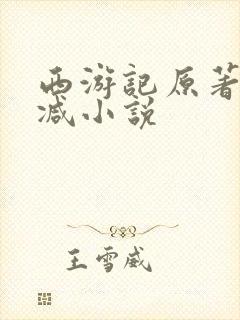 西游記原著
减小説
王雪威